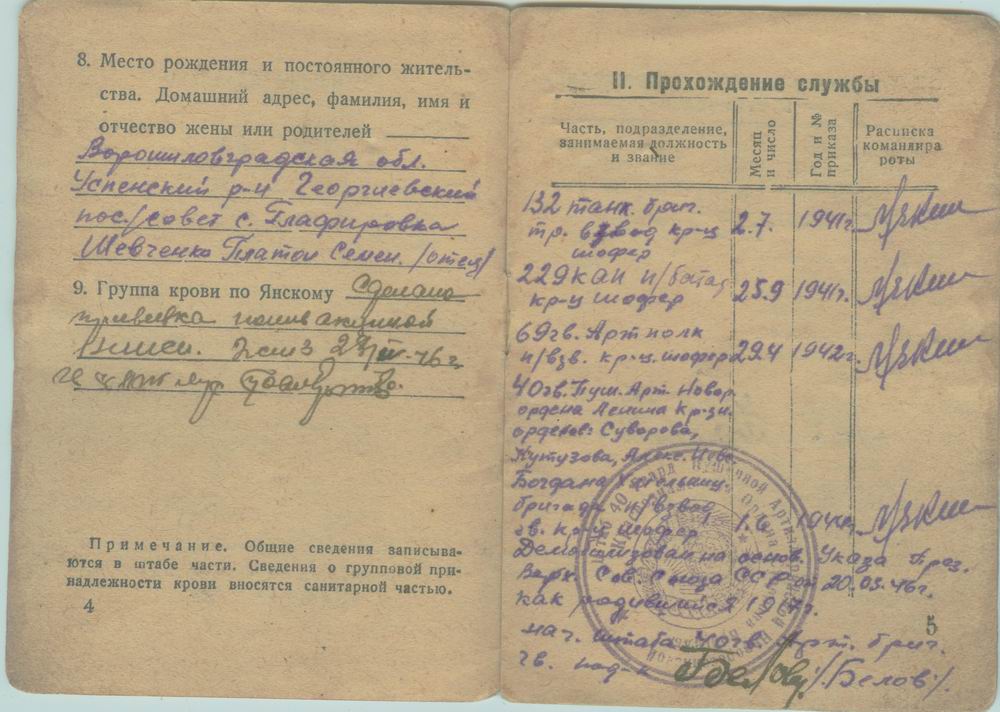 8. Место рождения и постоянного житель-
ства. Домашний адрес, фамилия, имя и
отчество жены или родителей
Ворошиловградская обл.
Успенский р-н Георгиевский
пос/совет с. Глафировка
Шевченко Платон Семен. /отец/
9. Группа крови по Янскому Сделана
прививка поливакциной
Примечание. Общие сведения записыва-
ются в штабе части. Сведения о групповой при-
надлежности крови вносятся санитарной частью.
4
II. Прохождение службы
Часть, подразделение, занимаемая должность и звание
Месяц и число
Год и № приказа
Расписка командира роты
132 танк. бриг.
тр. взвод кр-ц 2.7. 1941г.
шофер
229 кап п/батар
кр-ц шофер 25.9 1941г.
69 гв. Арт полк
п/взв. кр-ц. шофер 29.4 1942г.
40 гв. Пуш. Арт. Новор.
ордена Ленина Кр-зн.
орденов: Суворова,
Кутузова, Алекс. Невс
Богдана Хмельниц
бригада п/взвод
гв. кр-ц шофер 1.6 1944г.
Демобилизован на основ. Указа През.
Верх. Сов. Союза ССР от 20.03.46г.
как родившийся 1917г.
5
нач. штаба 40 гв. Арт. бриг.
гв. под-к /Белов/.